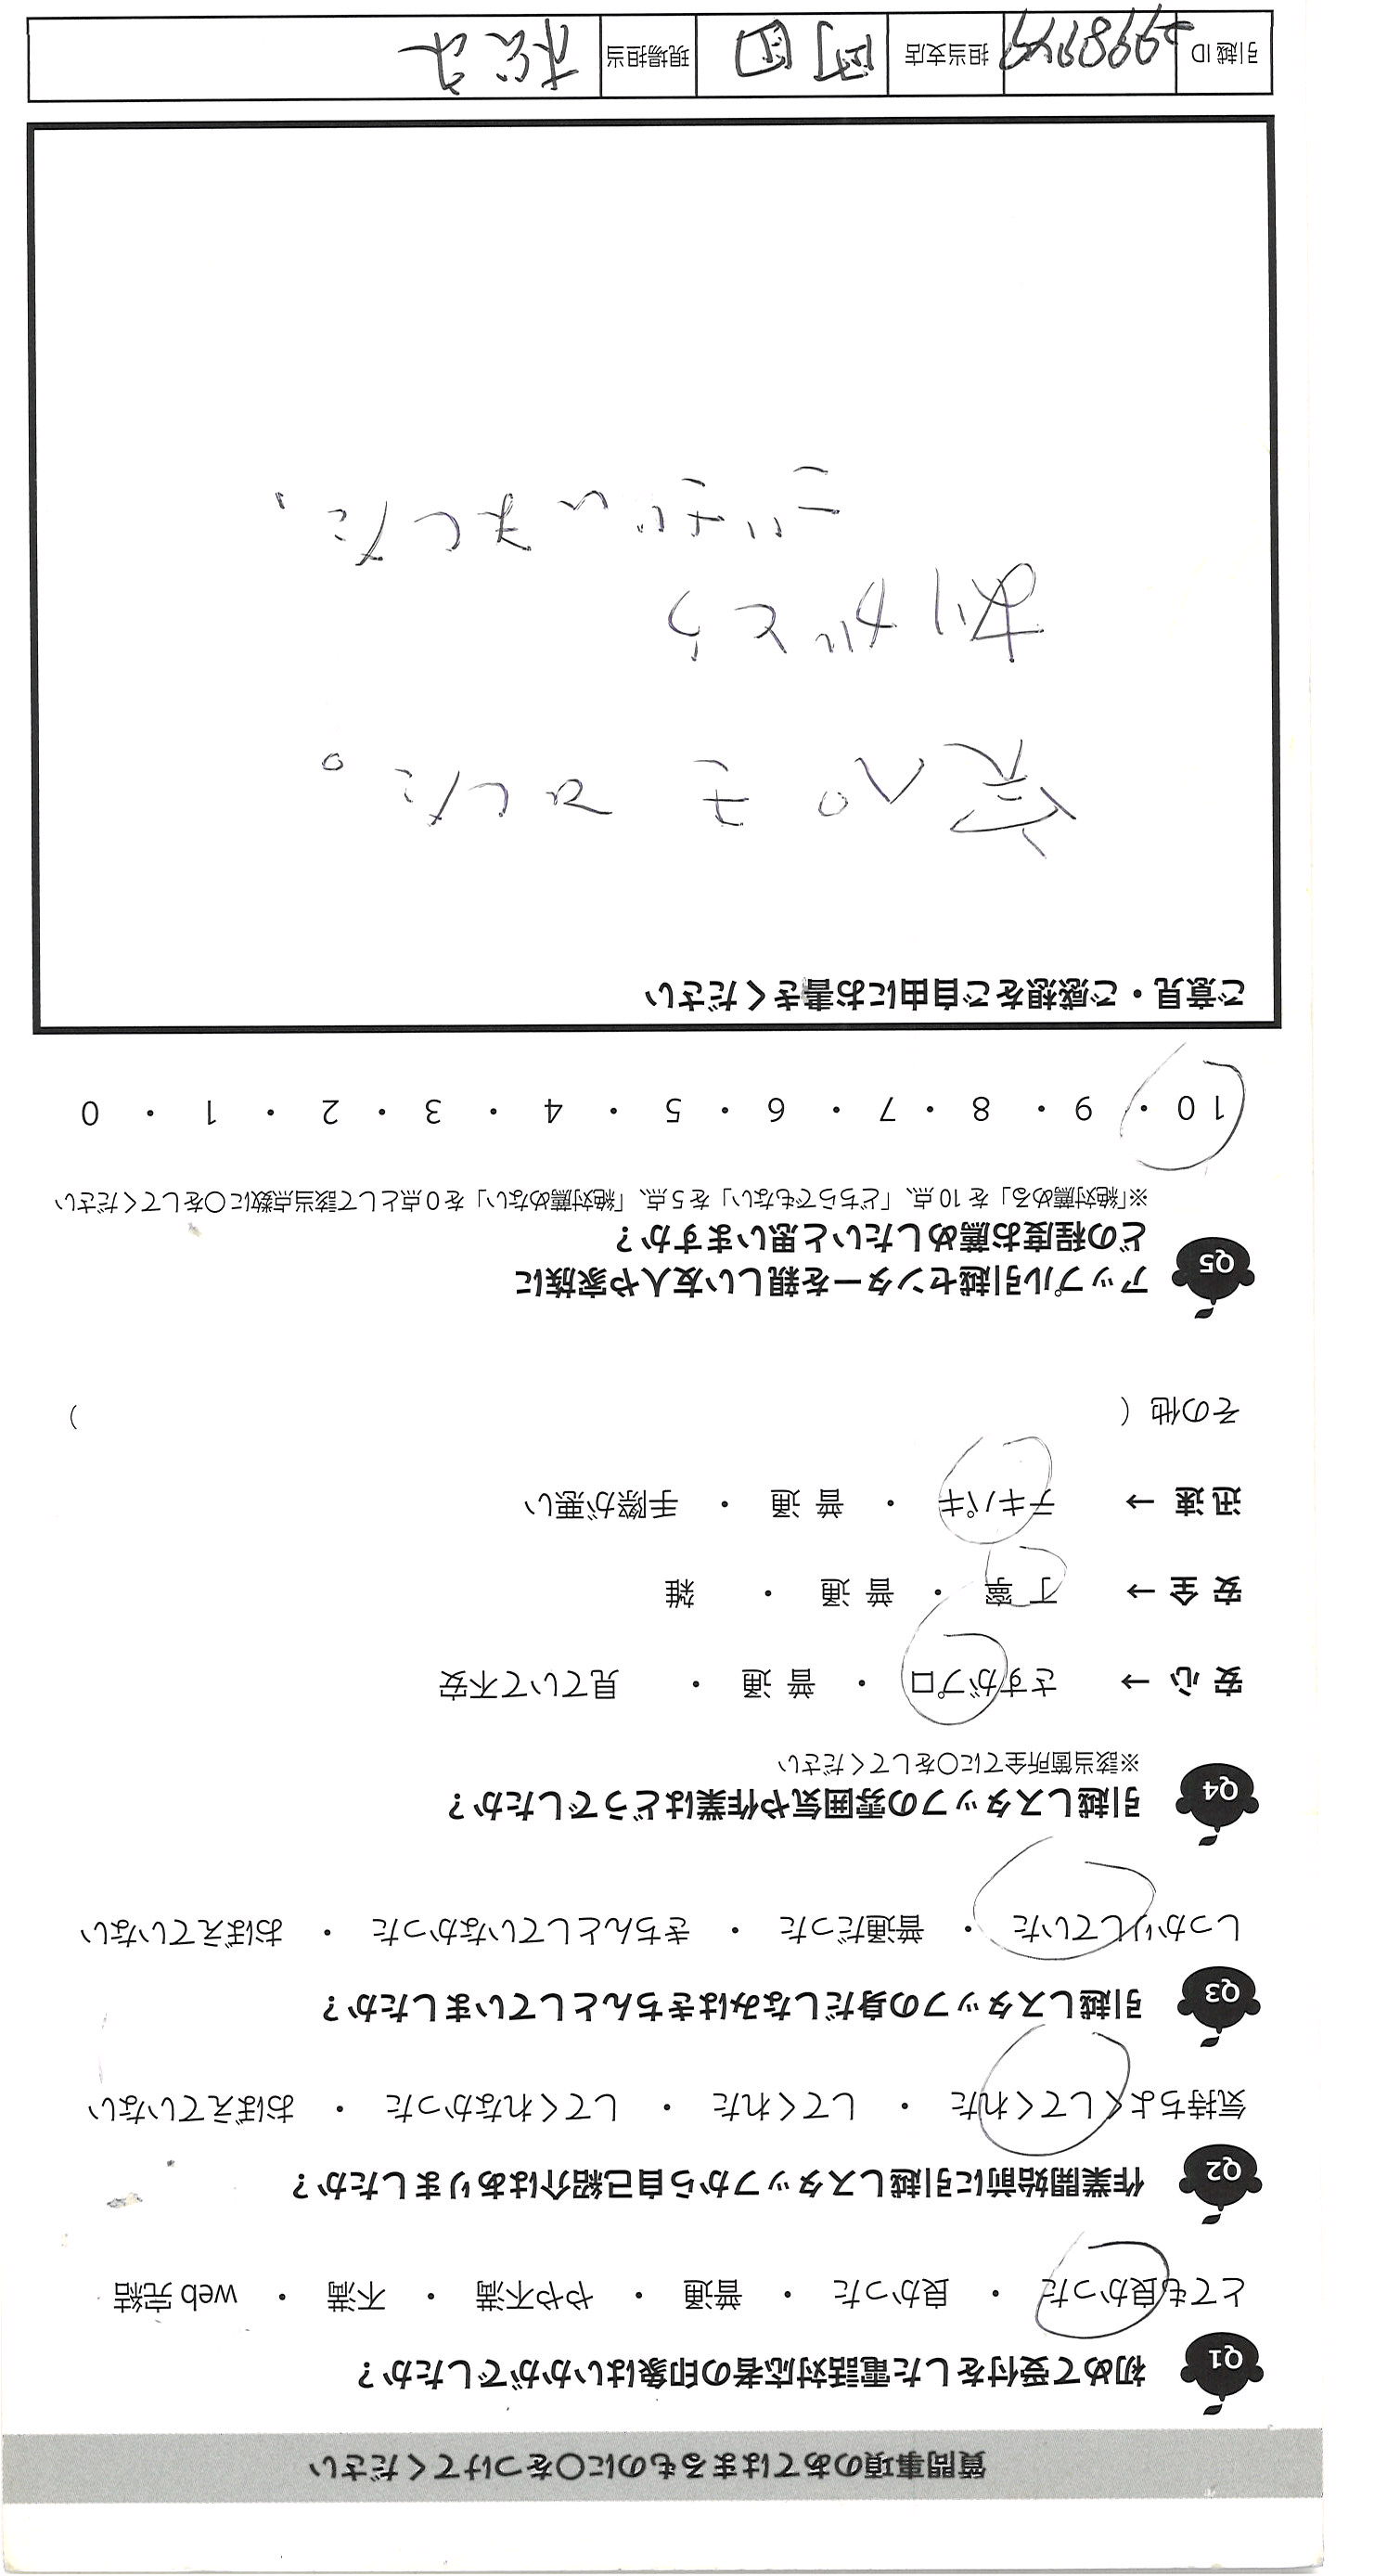 質問事項のあてはまるものに〇をつけてください
Q1 初めて受付をした電話対応者の印象はいかがでしたか？
とても良かった ・ 良かった ・ 普通 ・ やや不満 ・ 不満 ・ web 完結
Q2 作業開始前に引越しスタッフから自己紹介はありましたか？
気持ちよくしてくれた ・ してくれた ・ してくれなかった ・ おぼえていない
Q3 引越しスタッフの身だしなみはきちんとしていましたか？
しっかりしていた ・ 普通だった ・ きちんとしていなかった ・ おぼえていない
Q4 引越しスタッフの雰囲気や作業はどうでしたか？
※該当箇所全てに〇をしてください
安 心 → さすがプロ ・ 普 通 ・ 見ていて不安
安 全 → 丁 寧 ・ 普 通 ・ 雑
迅 速 → テキパキ ・ 普 通 ・ 手際が悪い
その他（ ）
Q5 アップル引越センターを親しい友人や家族に
どの程度お薦めしたいと思いますか？
※「絶対薦める」を 10 点、「どちらでもない」を 5 点、「絶対薦めない」を 0 点として該当点数に〇をしてください
10 ・ 9 ・ 8 ・ 7 ・ 6 ・ 5 ・ 4 ・ 3 ・ 2 ・ 1 ・ 0
ご意見・ご感想をご自由にお書きください
ありがとう
ございました。
引越 ID 担当支店 町田 現場担当